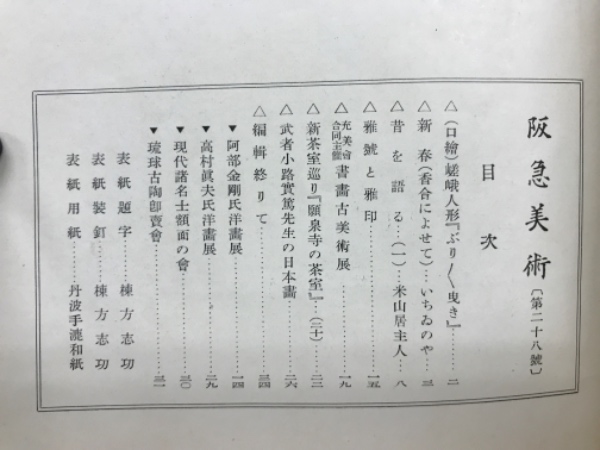 阪急美術〔第二十八號〕
目次
△(口繪)嵯峨人形『ぶり〳〵曳き』……二
△新春(香合によせて)…いちゐのや…三
△昔を語る…(一)…米山居主人…八
△雅號と雅印……一五
△充美會合同主催書畫古美術展……一九
△新茶室巡り『願泉寺の茶室』…(二十)…二三
△武者小路實篤先生の日本畫……二六
△編輯終りて……三四
▼阿部金剛氏洋畫展……一四
▼高村眞夫氏洋畫展……二九
▼現代諸名士額面の會……三〇
▼琉球古陶卽賣會……三一
表紙題字……棟方志功
表紙裝釘……棟方志功
表紙用紙……丹波手漉和紙